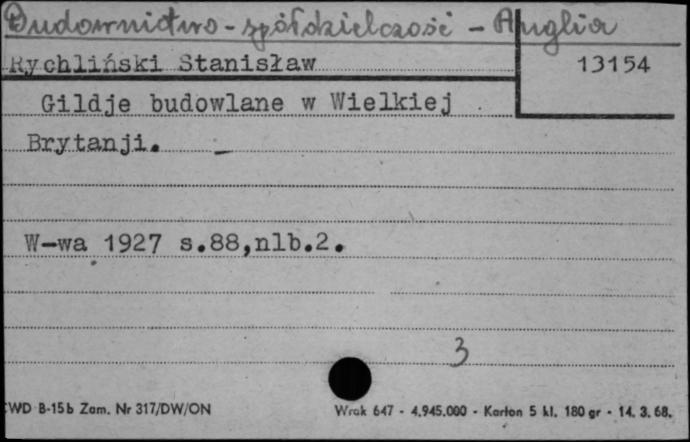 Budownictwo - spółdzielczość - Anglia
Rychliński Stanisław
13154
Gildje budowlane w Wielkiej
Brytanji.
W-wa 1927 s.88,nlb.2.
3
CWD B-15b Zam. Nr 317/DW/ON
Wrak 647 - 4.945.000 - Karton 5 kl. 180 gr - 14. 3. 68.